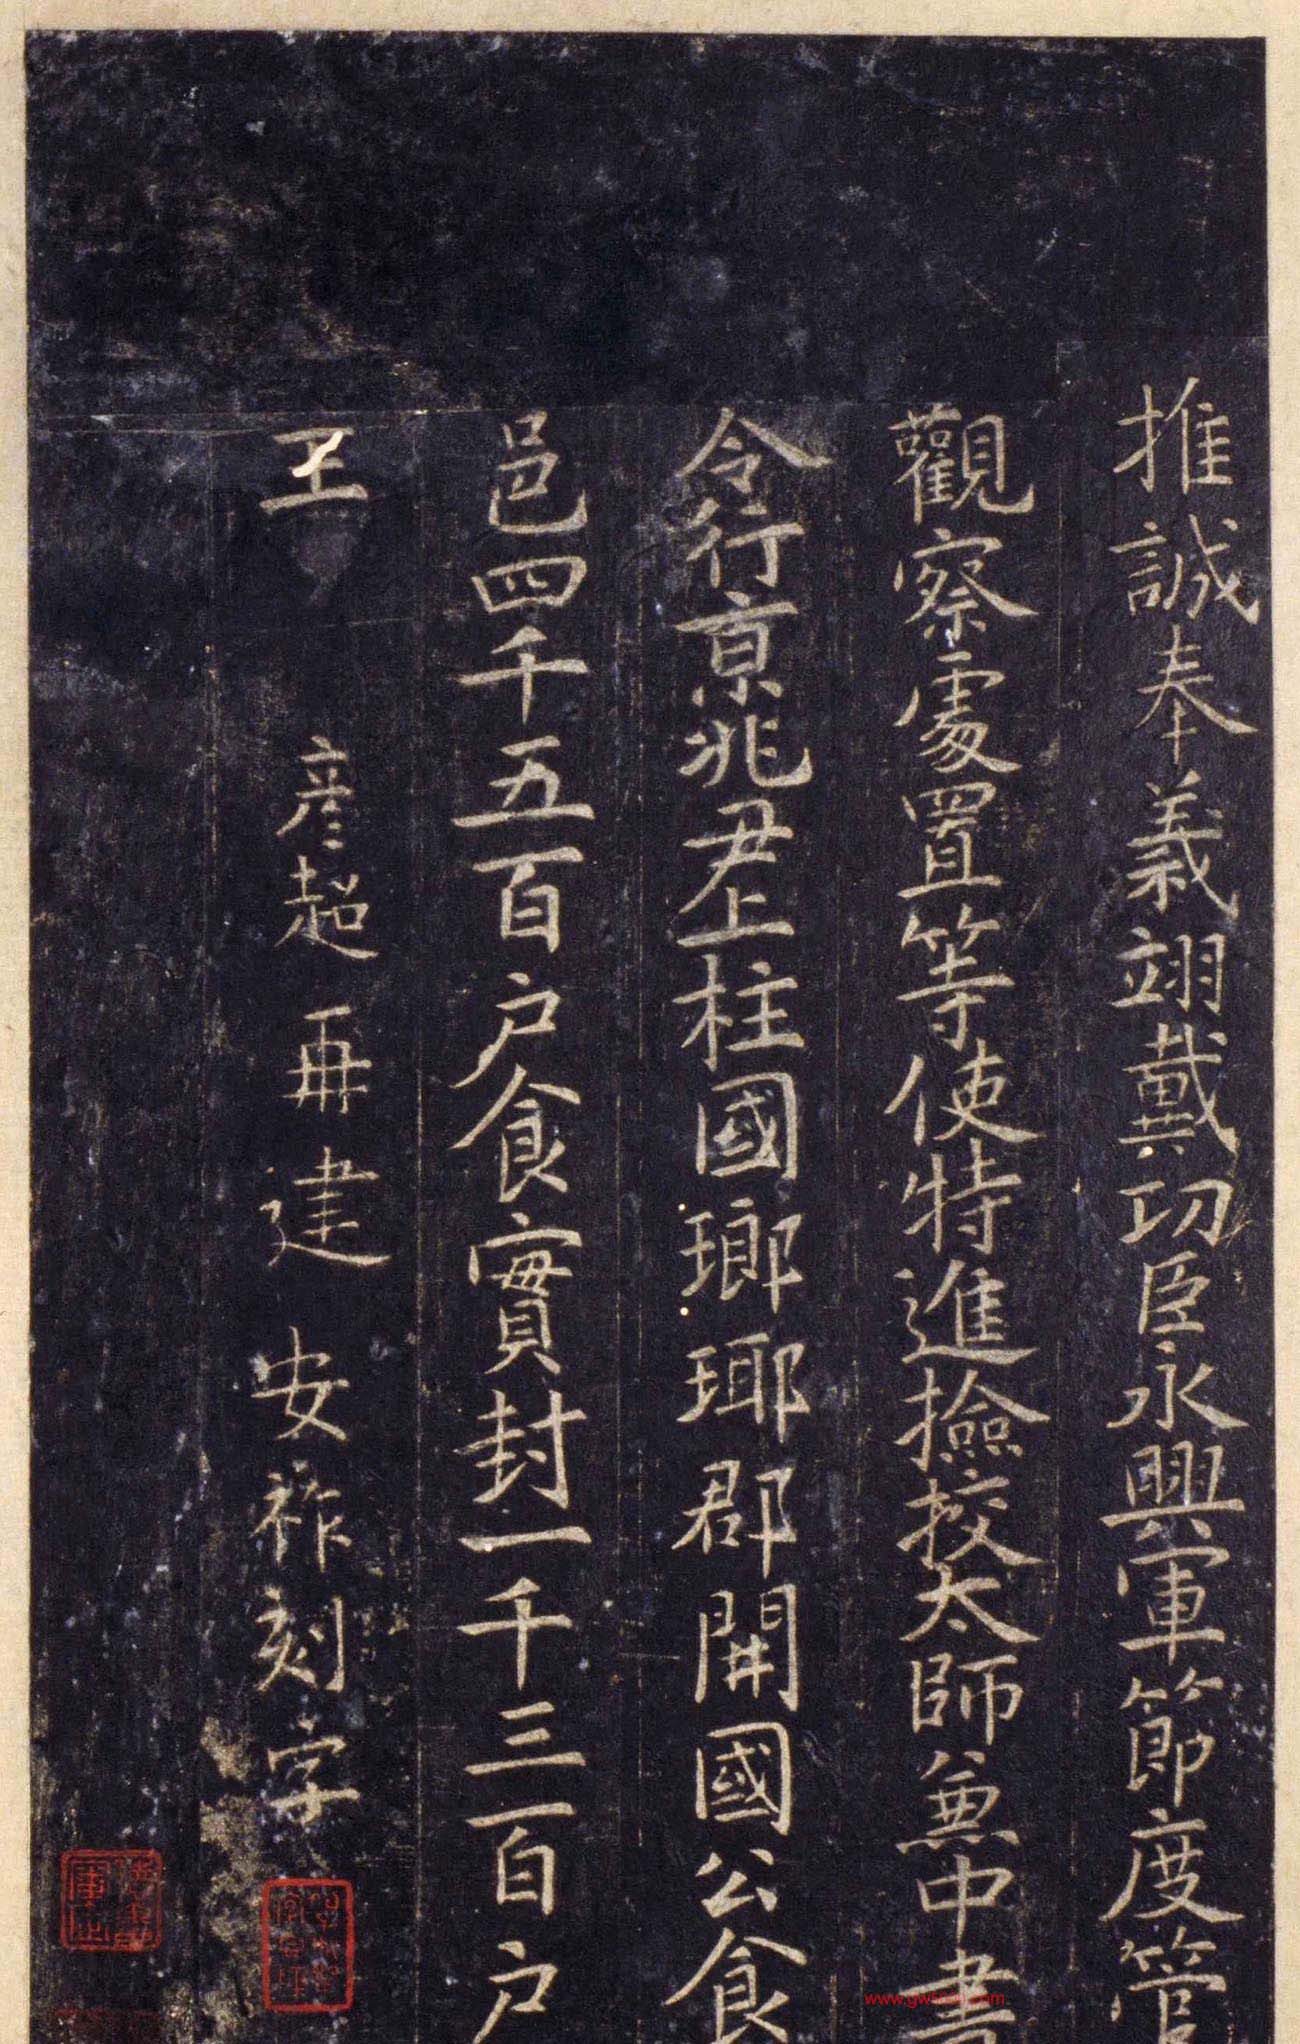 推誠奉義翊戴功臣永興軍節度管
觀察處置等使特進撿挍太師兼中書
令行京兆尹上柱國瑯瑘郡開國公食
邑四千五百户食實封一千三百户
王彦超再建 安祚刻字